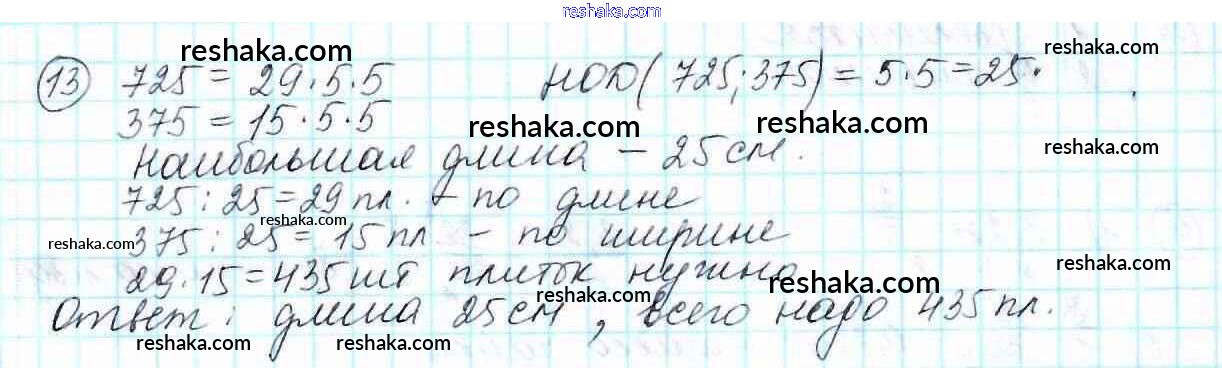 reshaka.com
reshaka.com reshaka.com reshaka.com
13 725 = 29·5·5 НОД(725;375) = 5·5=25.
375 = 15·5·5 reshaka.com reshaka.com
Наибольшая длина – 25 см. reshaka.com
725 : 25 = 29 пл. – по длине
reshaka.com
reshaka.com 375 : 25 = 15 пл – по ширине
29·15=435 шт плиток нужно reshaka.com
reshaka.com reshaka.com
Ответ: длина 25 см, всего надо 435 пл.
reshaka.com reshaka.com reshaka.com reshaka.com